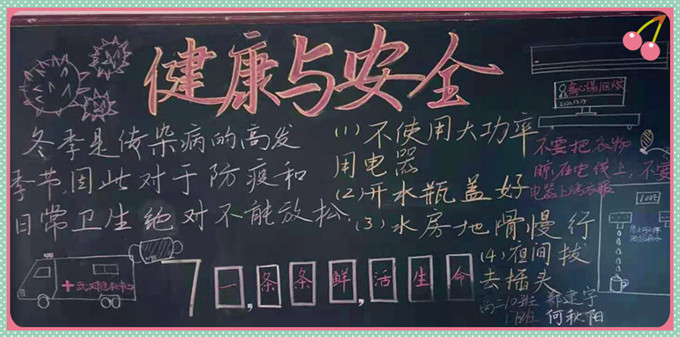 健康与安全
冬季是传染病的高发
季节因此对于防疫和
日常卫生绝对不能放松.
(1)不使用大功率
用电器
(2)开水瓶盖好
(3)水房地滑慢行
(4)夜间拔
去插头
不要把衣物
晾在电线上,不要
一条条鲜活生命
高二
何秋阳